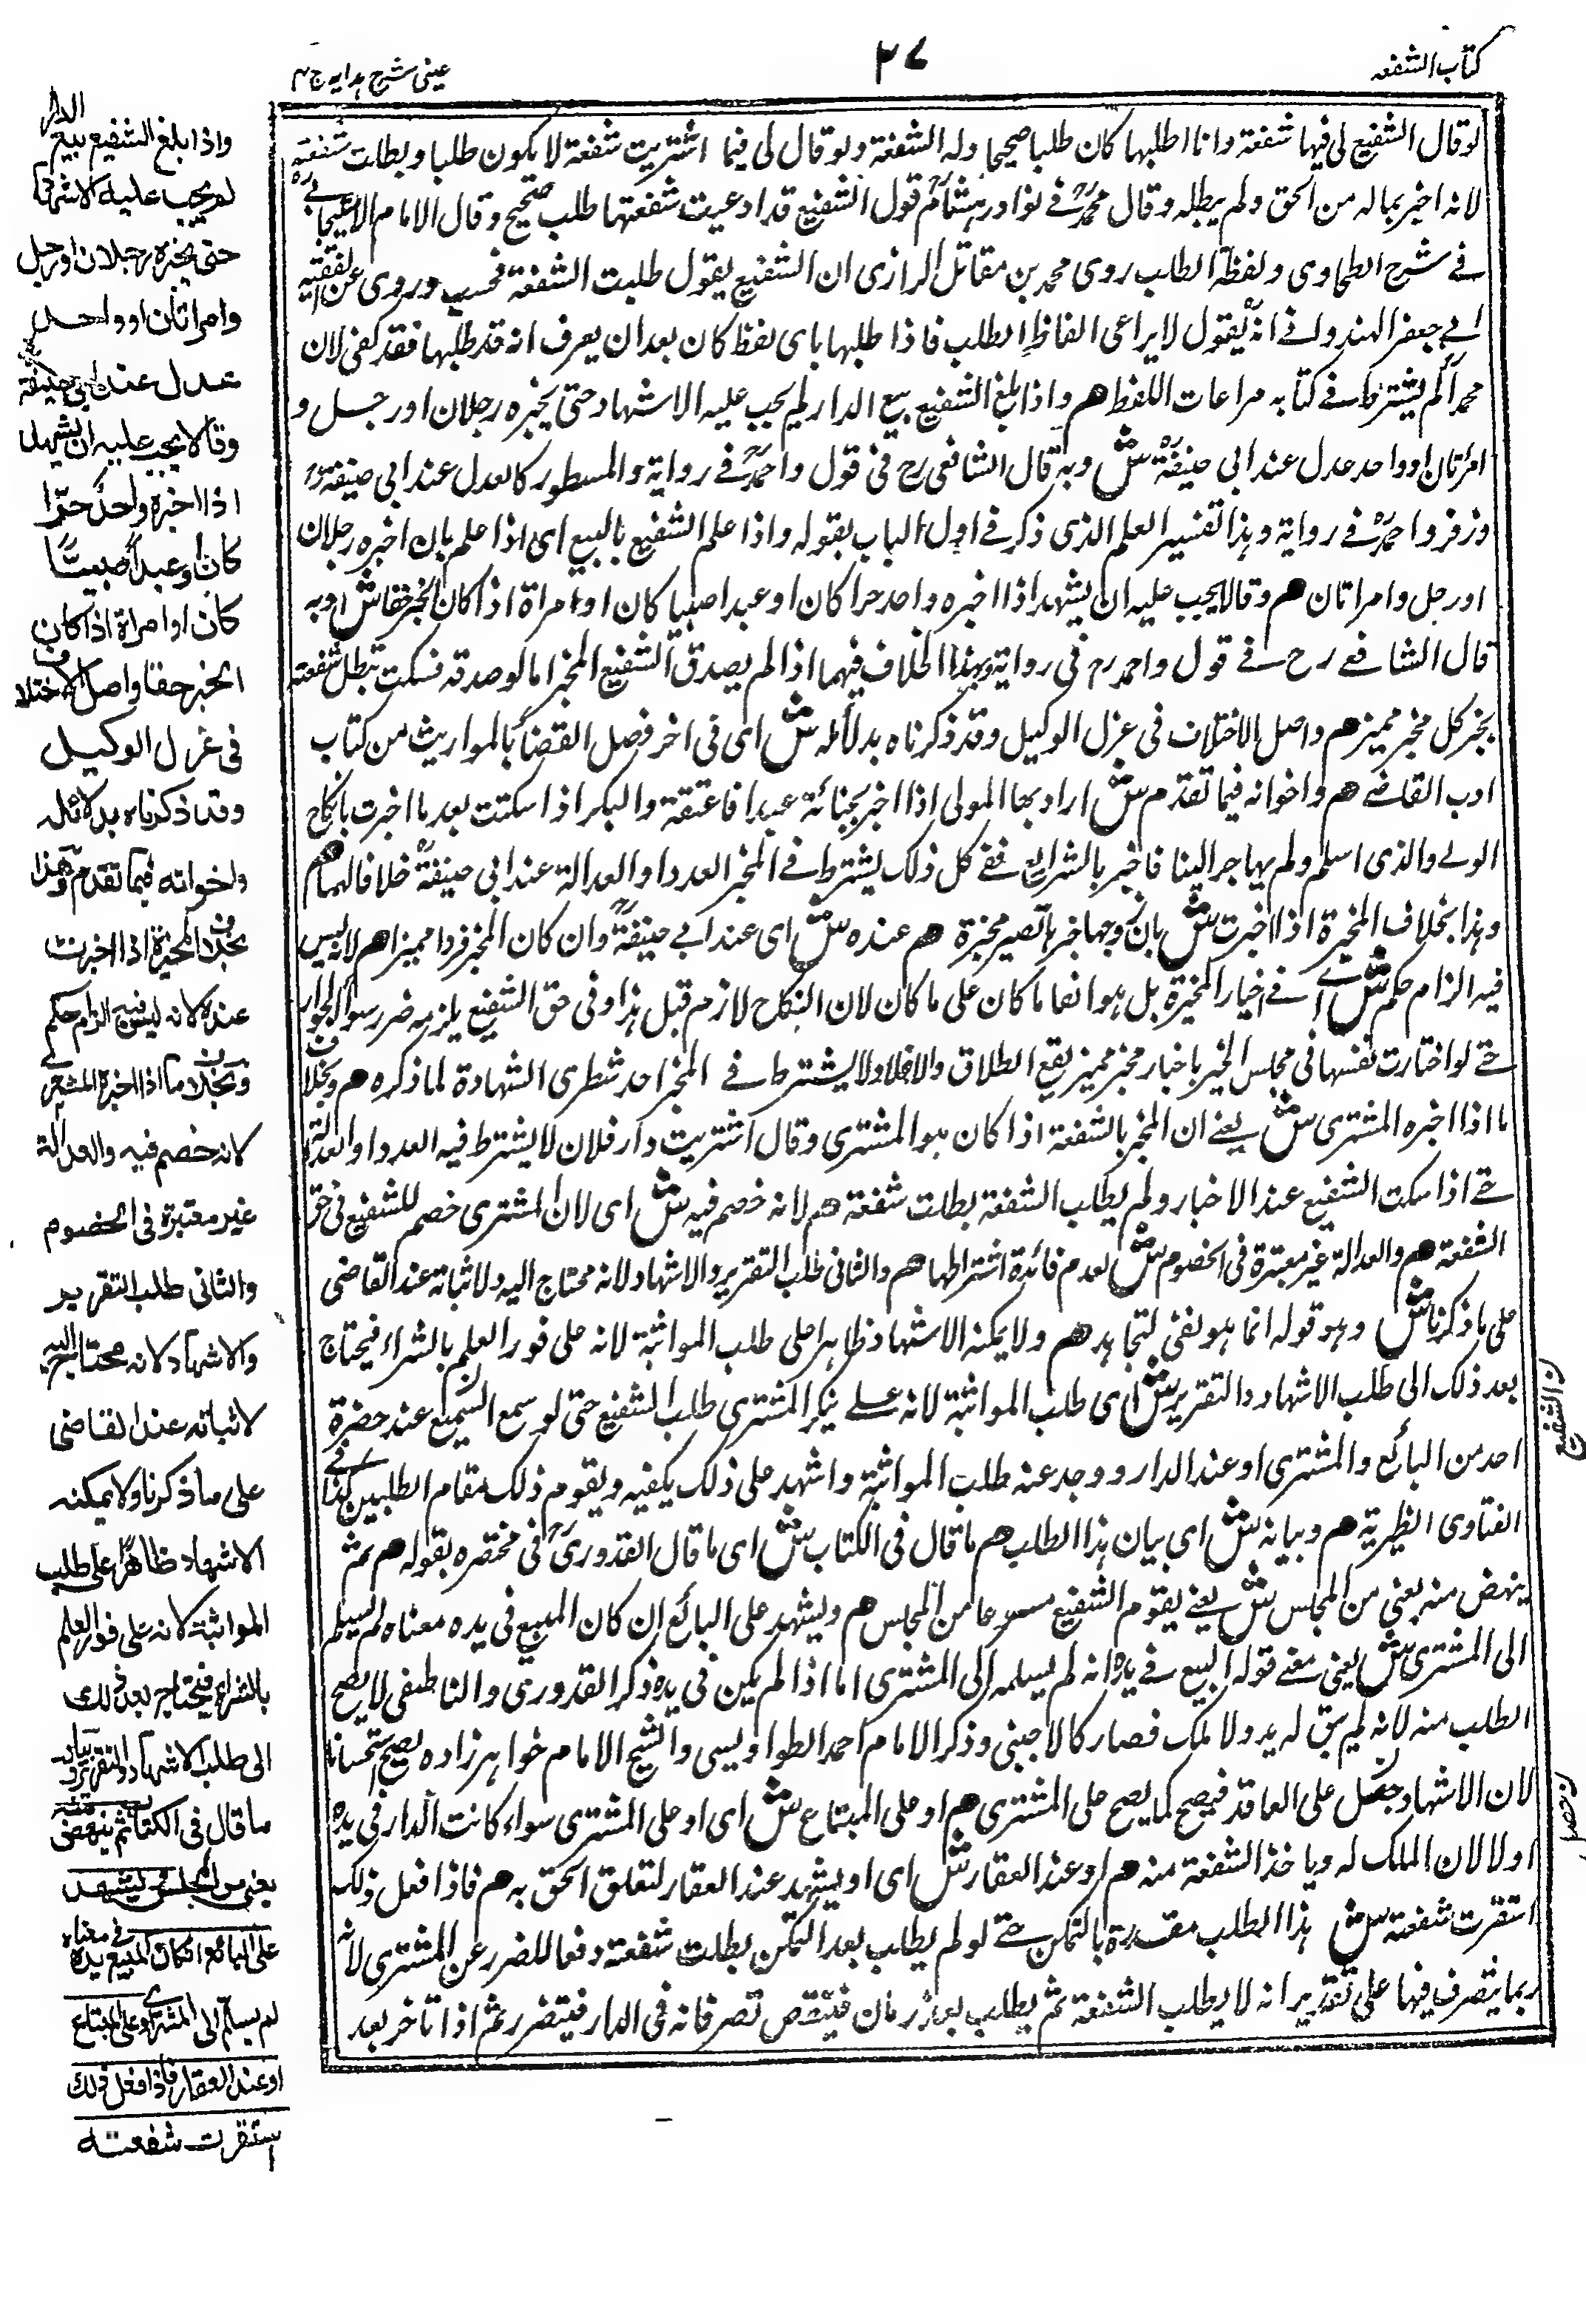 كتاب الشفعه
٢٧
عينى شرح هدايه ج ٣
لو قال الشفيع لى فيها شفعة وانا اطلبها كان طلبا صحيحا وله الشفعة ولو قال لى فيما اشتريت شفعة لا يكون طلبا وبطلت شفعته
لانه اخبر بماله من الحق ولم يطلبه وقال محمدؒ فى نوادر هشامؒ قول الشفيع قد ادعيت شفعتها طلب صحيح وقال الامام الاسبيجابى
فى شرح الطحاوى ولفظة الطلب روى محمد بن مقاتل الرازى ان الشفيع يقول طلبت الشفعة فحسب وروى عن الفقيه
ابى جعفر الهندوانى انه يقول لا يراعى الفاظ الطلب فاذا طلبها باى لفظ كان بعد ان يعرف انه قد طلبها فقد كفى لان
محمدا لم يشترط فى كتابه مراعات اللفظ هم واذا بلغ الشفيع بيع الدار لم يجب عليه الاشهاد حتى يخبره رجلان اورجل و
امرٔتان اوواحد عدل عند ابى حنيفةؒ ش وبه قال الشافعى رح فى قول واحمدؒ فى رواية والمسطور كالعدل عند ابى حنيفةؒ
وزفر واحمدؒ فى رواية وهذا تفسير العلم الذى ذكر فى اول الباب بقوله واذا علم الشفيع بالبيع اى اذا علم بان اخبره رجلان
اورجل وامراتان هم وقالا يجب عليه ان يشهد اذا اخبره واحد حرا كان او عبدا صبيا كان او امراة اذا كان الخبر حقا ش وبه
قال الشافعے رح فے قول واحمد رح فى رواية وبهذا الخلاف فيهما اذا لم يصدق الشفيع المخبر اما لو صدقه فسكت تبطل شفعته
بخبر كل مخبر مميز هم واصل الاختلاف فى عزل الوكيل وقد ذكرناه بدلائله ش اى فى اخر فصل القضا بالمواريث من كتاب
ادب القاضے هم واخواته فيما تقدم ش اراد بها المولى اذا اخبر بجناية عبدا فاعتقه والبكر اذا سكتت بعد ما اخبرت بانكاح
الولے والذى اسلم ولم يهاجر الينا فاخبر بالشرايع ففے كل ذلك يشترط فے المخبر العدد او العدالة عند ابى حنيفةؒ خلافا لهما هم
وهذا بخلاف المخيرة اذا اخبرت ش بان زوجها خيرها تصير مخيرة هم عنده ش اى عند ابے حنيفةؒ وان كان المخبر فردا مميزا هم لانه ليس
فيه الزام حكم ش اے فے اخيار المخيرة بل هو ابقا ما كان على ما كان لان النكاح لازم قبل هذا وفى حق الشفيع يلزمه ضرر سوء الجوار
حتے لو اختارت نفسها فى مجلس الخير باخبار مخبر مميز يقع الطلاق والافلا ولا يشترط فے المخبر احد شطرى الشهادة لما ذكره هم وبخلاف
ما اذا اخبره المشترى ش يعنے ان المخبر بالشفعة اذا كان هو المشترى وقال اشتريت دار فلان لا يشترط فيه العدد او العدالة
حتے اذا سكت الشفيع عند الاخبار ولم يطلب الشفعة بطلت شفعة هم لانه خصم فيه ش اى لان المشترى خصم للشفيع فى حق
الشفعة هم والعدالة غير معتبرة فى الخصوم ش لعدم فائدة اشتراطها هم والثانى طلب التقرير والاشهاد لانه محتاج اليه ولاثباته عند القاضى
على ما ذكرنا ش وهو قوله انما هو لنفى التجاحد هم ولا يمكنه الاشهاد ظاهرا على طلب المواثبة لانه على فور العلم بالشراء فيحتاج
بعد ذلك الى طلب الاشهاد والتقرير ش اى طلب المواثبة لانه علے ينكر المشترى طلب الشفيع حتى لو سمع السميع عند حضرة
احد من البائع والمشترى او عند الدار ووجد عنه طلب المواثبة واشهد على ذلك يكفيه ويقوم ذلك مقام الطلبين كذا فى
الفتاوى الظهرية هم وبيانه ش اى بيان هذا الطلب هم ما قال فى الكتاب ش اى ما قال القدورىؒ فى مختصره بقوله هم ثم
ينهض منه يعنى من المجلس ش يعنے يقوم الشفيع مسرعا من المجلس هم ويشهد على البائع ان كان المبيع فى يده معناه لم يسلم
الى المشترى ش يعنى معنے قوله المبيع فے يده انه لم يسلمه الى المشترى اما اذا لم يكن فى يده فذكر القدورى والناطفى لا يصح
الطلب منه لانه لم يبق له يد ولا ملك فصار كالاجنبى وذكر الامام احمد الطواويسى والشيخ الامام خواهر زاده يصح استحسانا
لان الاشهاد حصل على العاقد فيصح كما يصح على المشترى هم او على المبتاع ش اى او على المشترى سواء كانت الدار فى يده
او لا لان الملك له وياخذ الشفعة منه هم او عند العقار ش اى او يشهد عند العقار لتعلق الحق به هم فاذا فعل ذلك
استقرت شفعته ش هذا الطلب مقدرة بالتمكن حتے لو لم يطلب بعد التمكن بطلت شفعة دفعا للضرر عن المشترى لانه
ربما يتصرف فيها على تقدير انه لا يطلب الشفعة ثم يطلب بعد زمان فينقض تصرفاته فى الدار فيتضرر ثم اذا تاخر بعد
واذا بلغ الشفيع بيع الدار
لم يجب عليه الاشهاد
حتى يخبره رجلان او رجل
وامراتان او واحد
عدل عند ابى حنيفة
وقالا يجب عليه ان يشهد
اذا اخبره واحد حرّا
كان او عبدا صبيًا
كان او امراة اذا كان
الخبر حقا واصل الاختلاف
فى عزل الوكيل
وقد ذكرناه بدلائله
واخواته فيما تقدم وهذا
بخلاف المخيرة اذا اخبرت
عنده لانه ليس فيه الزام حكم
وبخلاف ما اذا اخبره المشترى
لانه خصم فيه والعدالة
غير معتبرة فى الخصوم
والثانى طلب التقرير
والاشهاد لانه محتاج اليه
لاثباته عند القاضى
على ما ذكرنا ولا يمكنه
الاشهاد ظاهرًا على طلب
المواثبة لانه على فور العلم
بالشراء فيحتاج بعد ذلك
الى طلب الاشهاد والتقرير وبيانه
ما قال فى الكتاب ثم ينهض منه
يعنى من المجلس ويشهد
على البائع ان كان المبيع فى يده معناه
لم يسلم الى المشترى او على المبتاع
او عند العقار فاذا فعل ذلك
استقرت شفعته
ن الشفيع